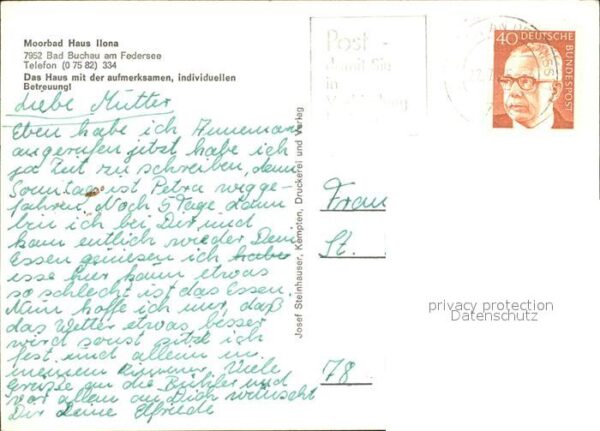 Moorbad Haus Ilona
7952 Bad Buchau am Federsee
Telefon (0 75 82) 334
Das Haus mit der aufmerksamen, individuellen
Betreuung!
Liebe Mutter
Eben habe ich Annemarie
angerufen jetzt habe ich
ja Zeit zu schreiben, denn
Sonntag ist Petra wegge-
fahren. Noch 5 Tage dann
bin ich bei Dir und
kann entlich wieder Dein
Essen geniesen ich habe
esse hier kaum etwas
so schlecht ist das Essen.
Nun hoffe ich nur, daß
das Wetter etwas besser
wird sonst sitze ich
fest und allein in
meinem Zimmer. Viele
Grüsse an die und
vor allem an Dich wünscht
Dir Deine Elfriede
Josef Steinhauser, Kempten, Druckerei und Verlag
Post -
damit Sie
in
Verbindung
40
DEUTSCHE
BUNDESPOST
Frau
St.
78
privacy protection
Datenschutz